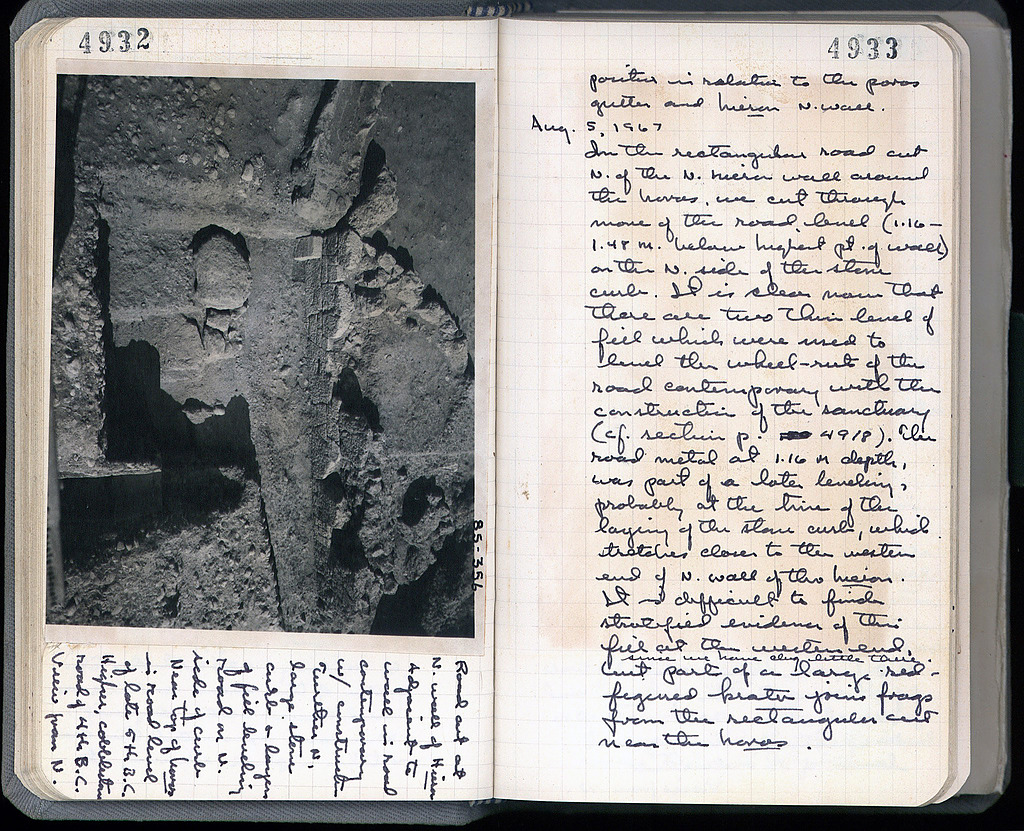 4932
85-356
Road cut at
N. wall of Hieron
Adjacent to
wall in road
contemporary
w/ construction
Further N.
large stone
curb & layers
of fill leveling
road on N.
side of curb
Near top of horos
in road level
of late 5th B.C.
Higher, cobblestone
road of 4th B.C.
View from N.
4933
position in relation to the poros
gutter and hieron N. wall.
Aug. 5, 1967
In the rectangular road cut
N. of the N. hieron wall around
the horos, we cut through
more of the road level (1.16-
1.48 m. below highest pt. of wall)
on the N. side of the stone
curb. It is clear now that
there are two thin level of
fill which were used to
level the wheel-rut of the
road contemporary with the
construction of the sanctuary
(cf. section p. 4918). The
road metal at 1.16 m depth,
was part of a later leveling,
probably at the time of the
laying of the stone curb, which
stretches closer to the western
end of N. wall of the hieron.
It is difficult to find
stratified evidence of this
fill at the western end,
since we have dug little there.
but parts of a large red-
figured krater joins frags
from the rectangular cut
near the horos.